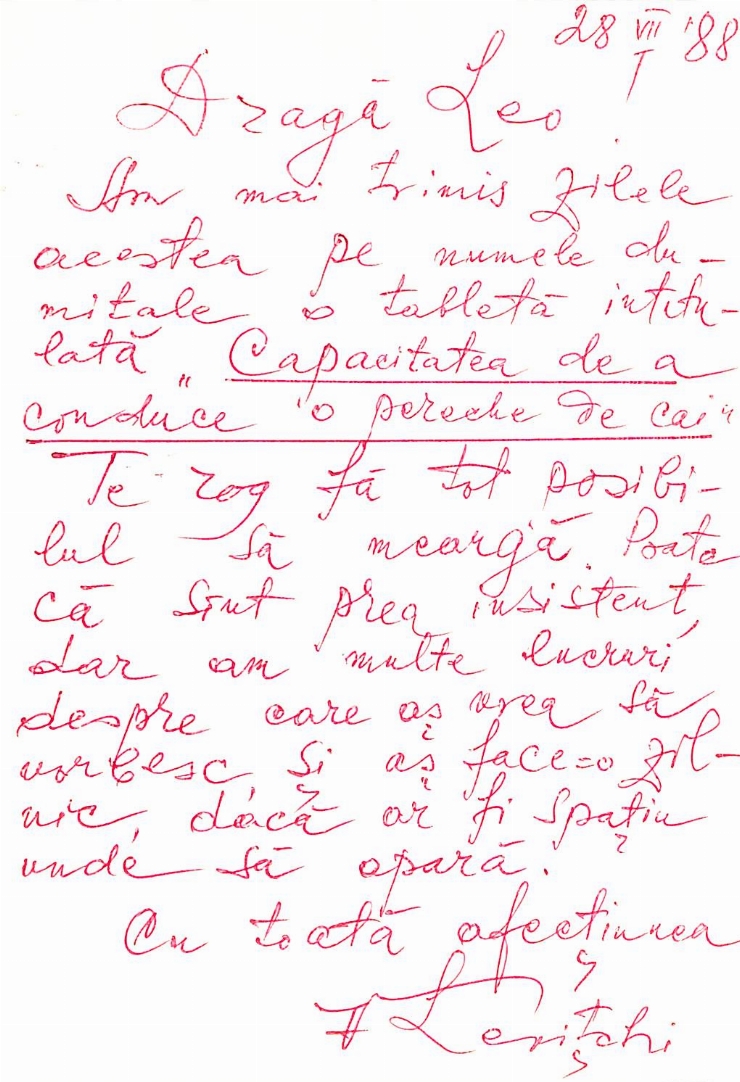 28 VII '88
Dragă Leo
Am mai trimis zilele
acestea pe numele du-
mitale o tabletă intitu-
lată „Capacitatea de a
conduce o pereche de cai"
Te rog fă tot posibi-
lul să meargă. Poate
că sînt prea insistent,
dar am multe lucruri
despre care aș vrea să
vorbesc, și aș face-o zil-
nic, dacă ar fi spațiu
unde să apară.
Cu toată afecțiunea